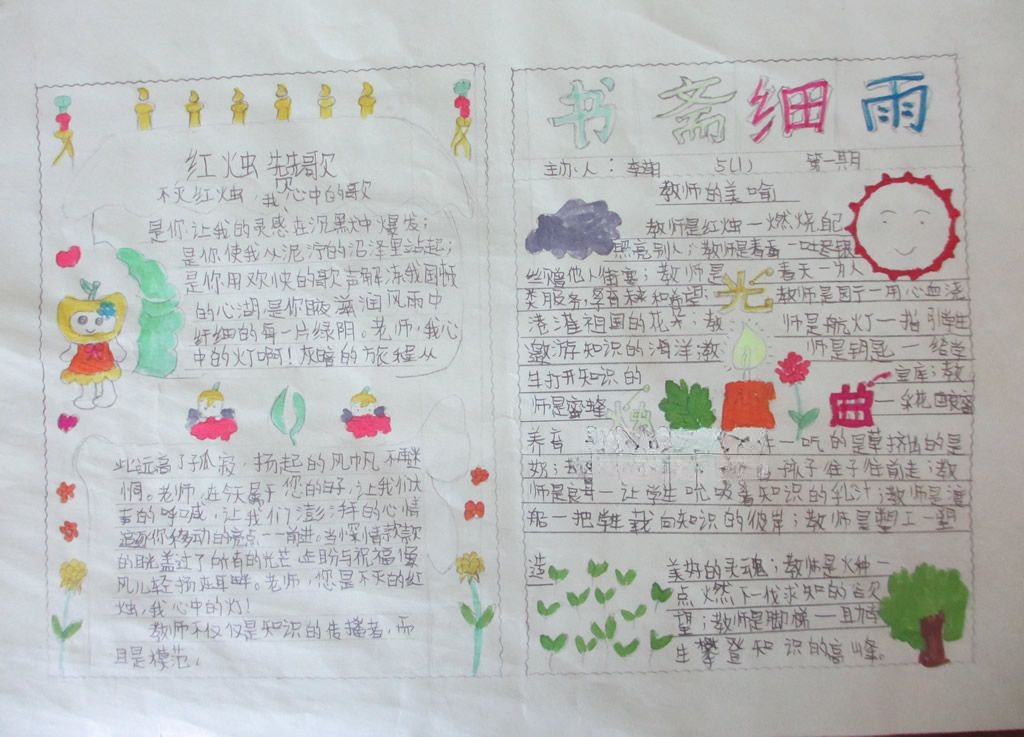 红烛颂歌
不灭红烛,我心中的歌
是你让我的灵感在沉黑中爆发;
是你使我从泥泞的沼泽里站起;
是你用欢快的歌声解冻我困顿
的心湖,是你滋润风雨中
纤细的每一片绿阴。老师,我心
中的灯啊!灰暗的旅程从
此远离了孤寂,扬起的风帆不再
惘。老师,在今天属于您的日子,让我们大
声的呼喊,让我们澎湃的心情
追逐你移动的亮点一一前进。当深情款款
的目光盖过了所有的光芒 企盼与祝福像
风儿轻扬在耳畔。老师,您是不灭的红
烛,我心中的灯!
教师不仅仅是知识的传播者,而
且是模范。
书斋细雨
主办人:李翔 5(1) 第一期
教师的美喻
教师是红烛一燃烧自己
照亮别人;教师是春蚕一吐尽银
丝赠他人御寒;教师是春天一为人
类服务,孕育和希望;光 教师是园丁一用心血浇
浇灌祖国的花朵;教师是航灯一指引学生
遨游知识的海洋;教师是钥匙一给学
生打开知识的宝库;教
师是蜜蜂一采花酿蜜
养育一吃的是草挤出的是
奶;一孩子往前走;教
师是良母一让学生吮吸着知识的乳汁;教师是渡
船一把学生载向知识的彼岸;教师是塑工一塑
造美好的灵魂;教师是火种一
点燃下一代求知的欲
望;教师是脚梯一
生攀登知识的高峰。